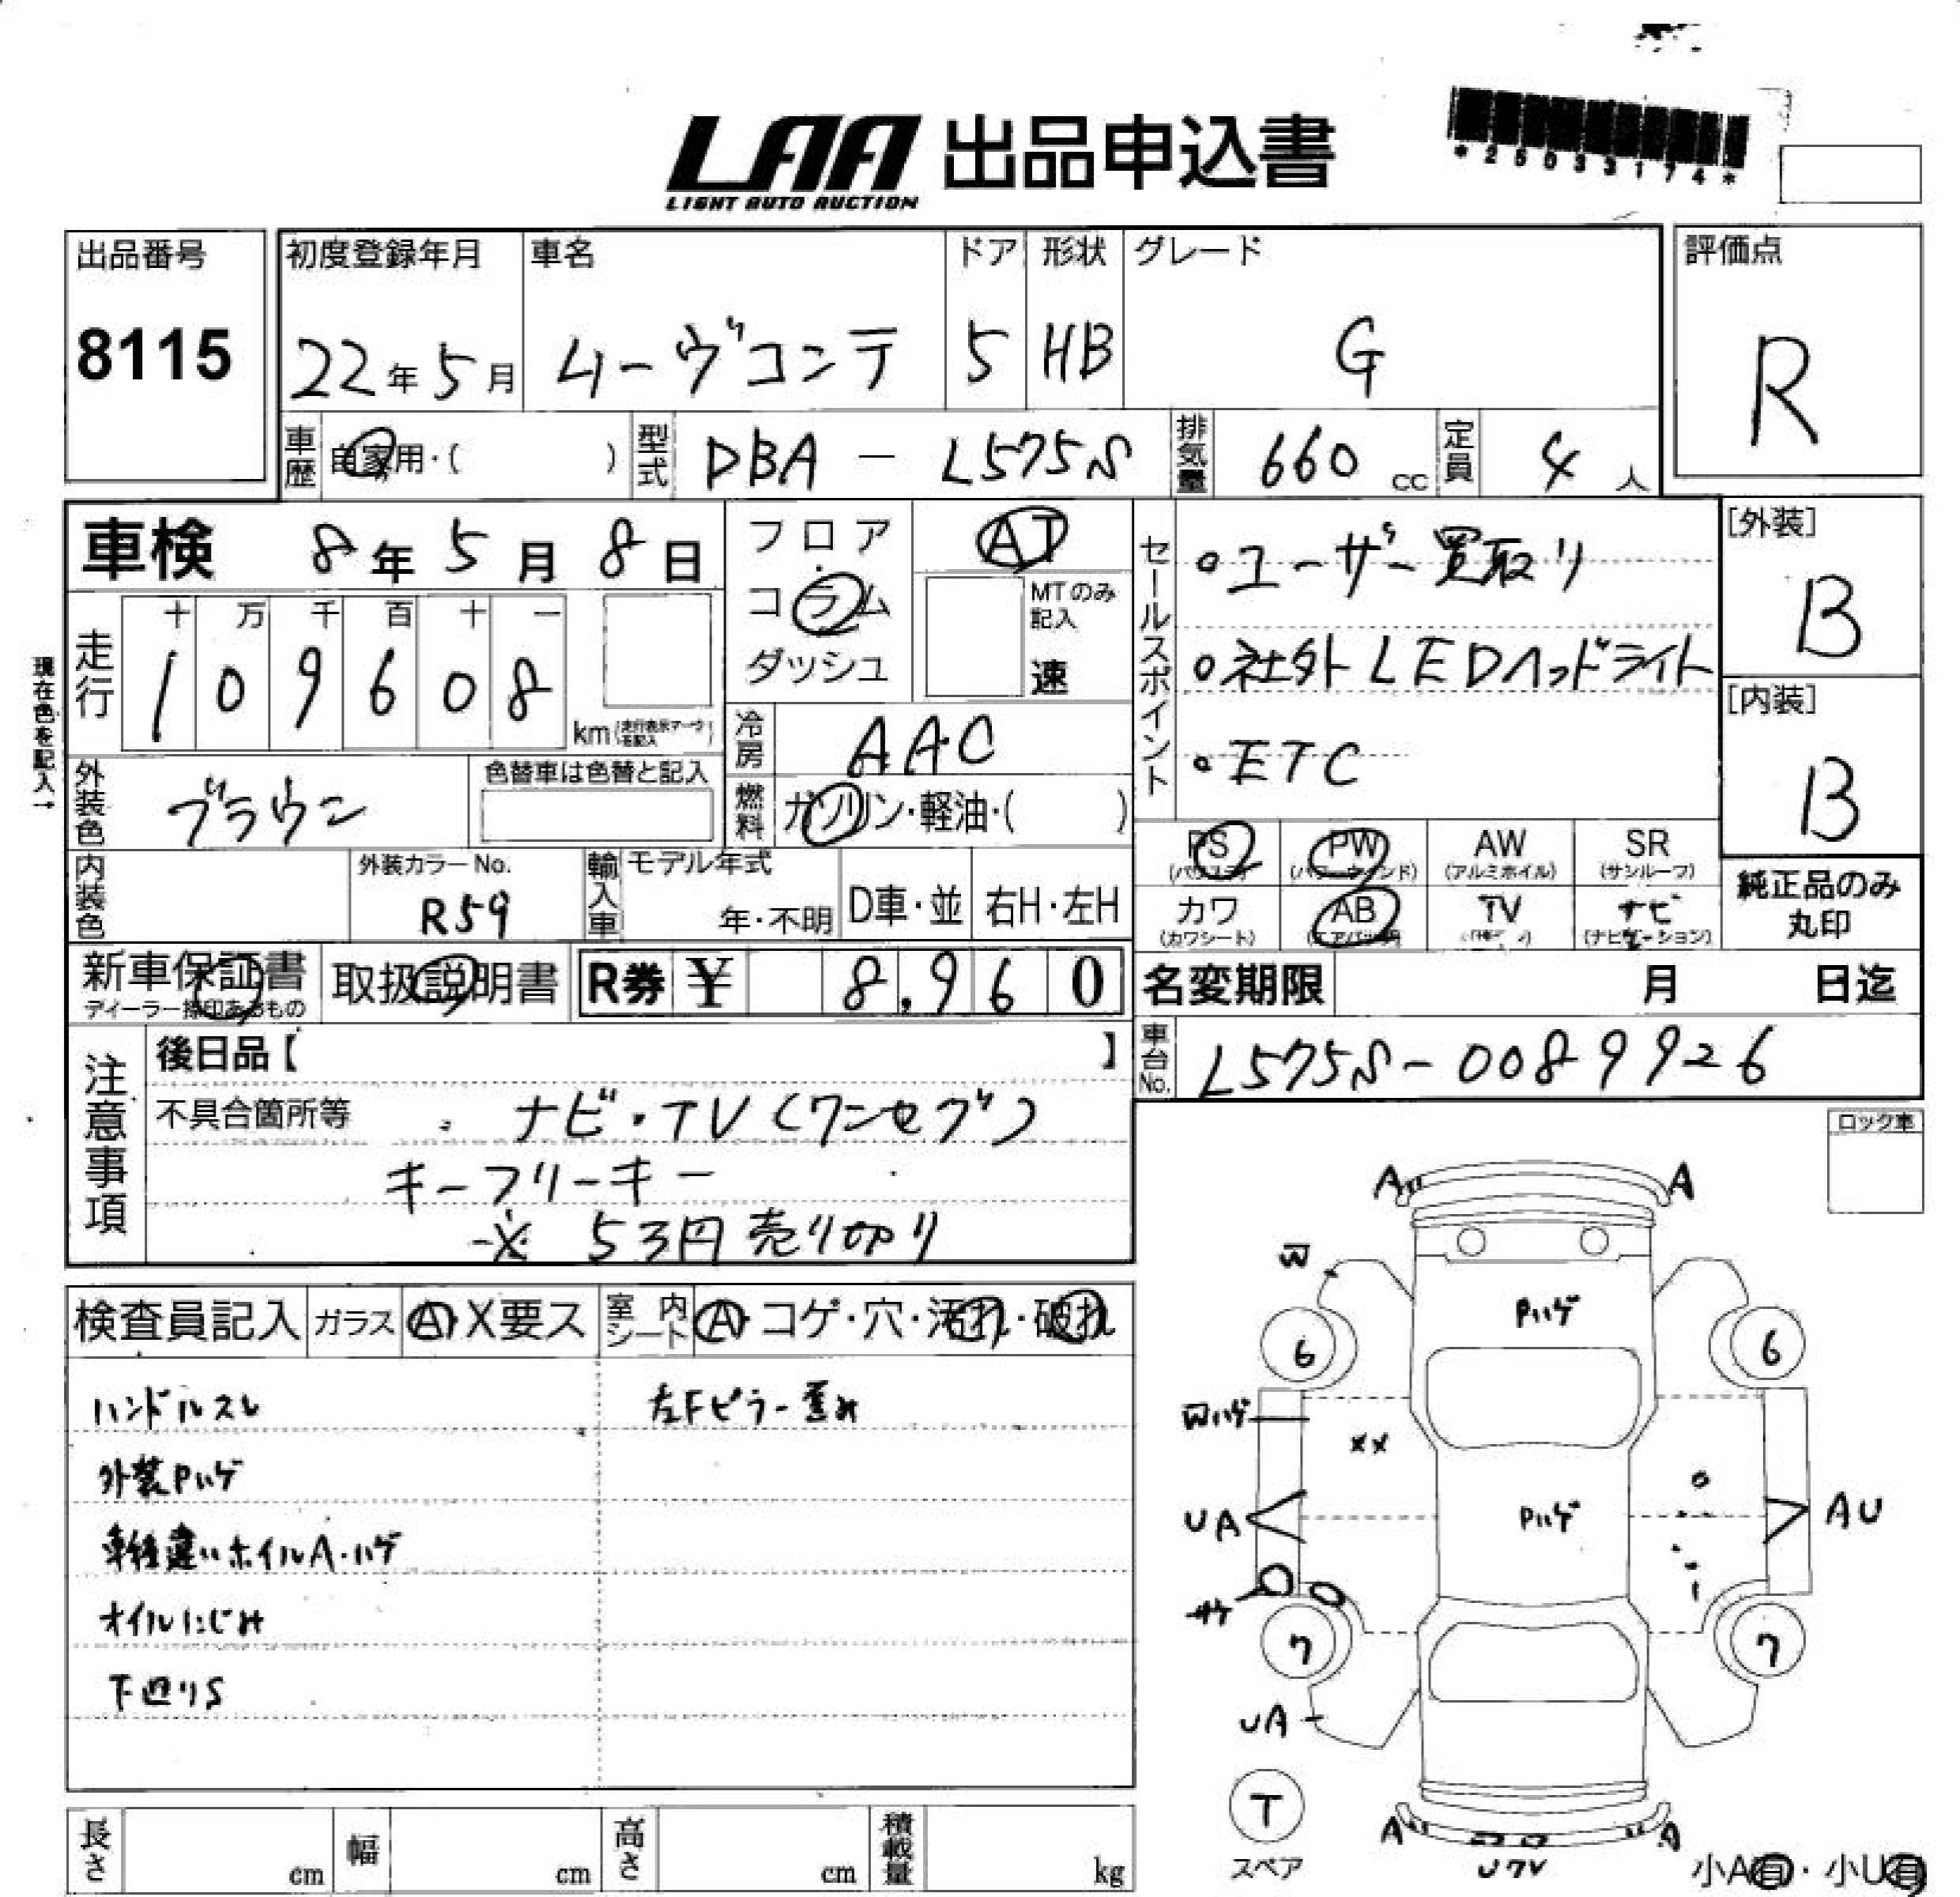 LAA 出品申込書
LIGHT AUTO AUCTION
*25033174*
出品番号
8115
初度登録年月
22年5月
車名
ムーヴコンテ
ドア
5
形状
HB
グレード
G
評価点
R
車歴 自家用・( )
型式 DBA - L575S
排気量 660 cc
定員 4 人
車検 8年5月8日
現在色を記入→
走行
十 万 千 百 十 一
1 0 9 6 0 8
km (走行表示マークを記入)
フロア
コラム
ダッシュ
AT
MTのみ記入
速
冷房 AAC
燃料 ガソリン・軽油・( )
外装色 ブラウン
色替車は色替と記入
内装色
外装カラーNo.
R59
輸入車
モデル年式
年・不明
D車・並
右H・左H
セールスポイント
・ユーザー買取り
・社外LEDヘッドライト
・ETC
[外装]
B
[内装]
B
PS (パワステ)
PW (パワーウィンド)
AW (アルミホイル)
SR (サンルーフ)
カワ (カワシート)
AB (エアバック)
TV
ナビ (ナビゲーション)
純正品のみ
丸印
新車保証書
ディーラー捺印あるもの
取扱説明書
R券 ¥ 8,960
名変期限 月 日迄
車台No. L575S-0089926
注意事項
後日品【 】
不具合箇所等 ・ナビ・TV(ワンセグ)
キーフリーキー
※ 53円売り切り
ロック車
検査員記入
ガラス A・X要ス
室内シート A・コゲ・穴・汚れ・破れ
ハンドルスレ
左Fピラー歪み
外装Pハゲ
車種違いホイルA・ハゲ
オイルにじみ
下廻りS
A A
W
Pハゲ
6 6
Wハゲ
XX
UA
Pハゲ
AU
サケ
7 7
UA
T
スペア
A A
小A有・小U有
長さ cm
幅 cm
高さ cm
積載量 kg